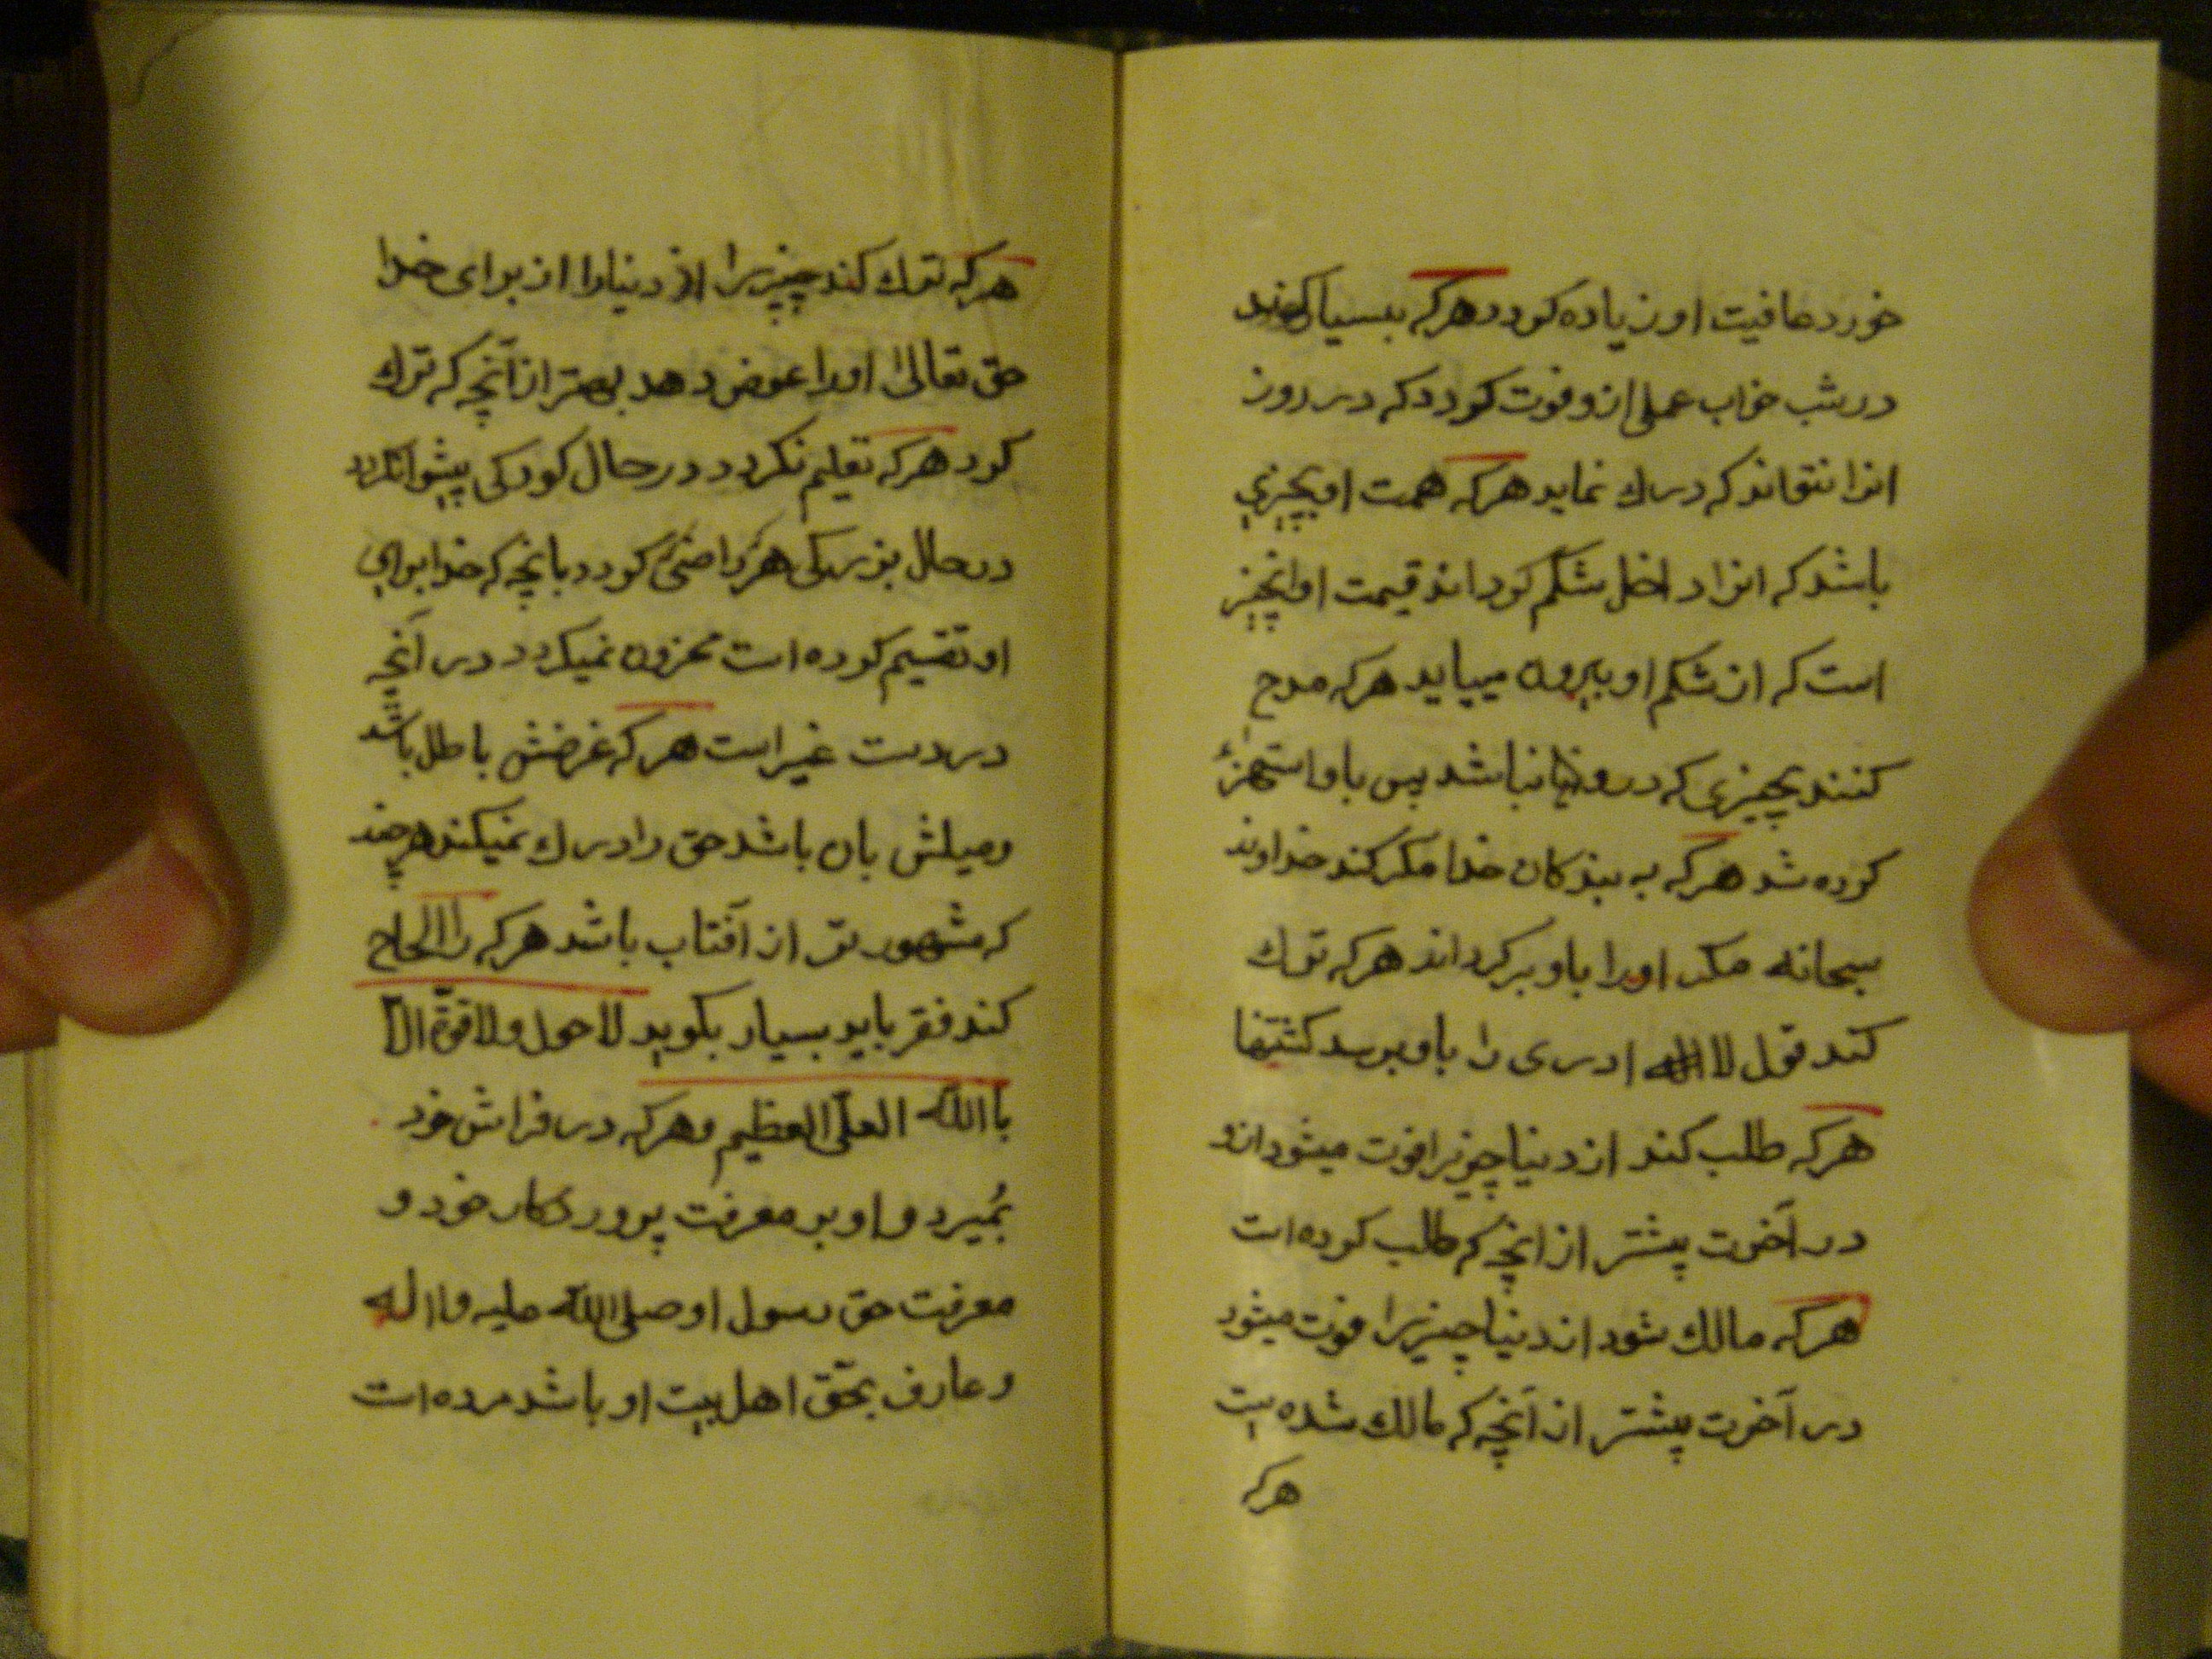 خورد عافیت او زیاده کردد هرکه بسیار کند
در شب خواب عملی ازو فوت کردد که در روز
انرا نتواند که درك نماید هرکه همت او بچیزی
باشد که انرا داخل شکم کرداند قیمت او انچیز
است که از شکم او بیرون میاید هرکه مدح
کنند بچیزی که درو نباشد پس باو استهزء
کرده شد هرکه به بندکان خدا مکر کند خداوند
سبحانه مکر اورا باو برکرداند هرکه ترك
کند قول لا ادری را باو برسد کشتنها
هرکه طلب کند از دنیا چیزیرا فوت میشود ازو
در آخرت پیشتر از انچه که طلب کرده است
هرکه مالك شود از دنیا چیزیرا فوت میشود
در آخرت پیشتر از آنچه که مالك شده
هرکه
هرکه ترك کند چیزیرا از دنیا را از برای خدا
حق تعالی اورا عوض دهد بهتر از آنچه که ترك
کرد هرکه تعلیم نکردد در حال کودکی پیشوا نکردد
در حال بزرکی هرکه راضی کردد بانچه که خدا برای
او تقسیم کرده است محزون نمیکردد در آنچه
در دست غیر است هرکه غرضش باطل باشد
و میلش بان باشد حق را درك نمیکند هرچند
که مشهور تر از آفتاب باشد هرکه را الحاح
کند فقر باید بسیار بکوید لا حول ولا قوّة الّا
باالله العلّی العظیم و هرکه در فراش خود
بُمیرد و او بر معرفت پروردکار خود و
معرفت حق رسول او صلی الله علیه و اله
و عارف بحّق اهل بیت او باشد مرده است